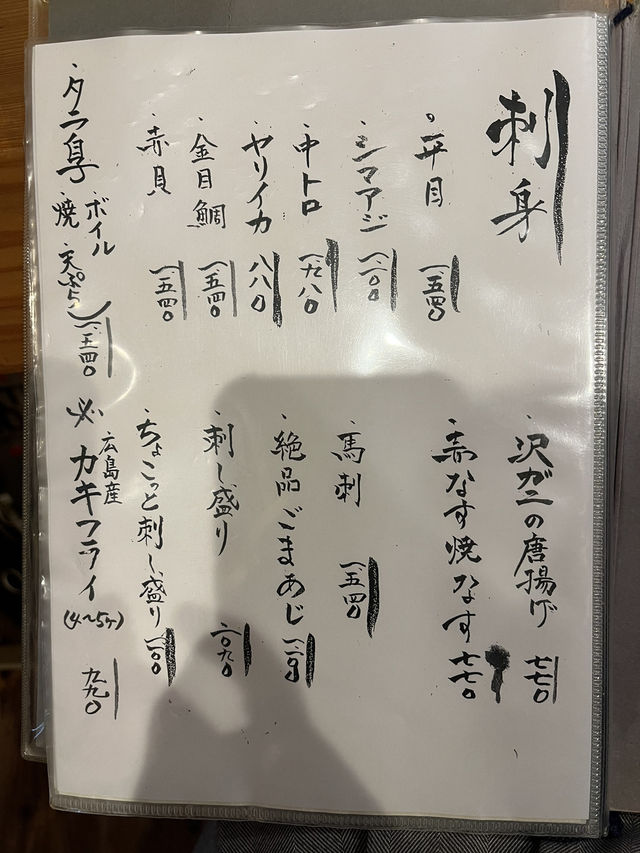 刺身
平目 一、五四〇
シマアジ 一、一〇〇
中トロ 一、九八〇
ヤリイカ 八八〇
金目鯛 一、五四〇
赤貝 一、五四〇
タラ白子 ボイル
焼
天ぷら 一、五四〇
沢ガニの唐揚げ 七七〇
赤なす焼なす 七七〇
馬刺 一、五四〇
絶品ごまあじ
刺し盛り 二〇九〇
ちょこっと刺し盛り 一、一〇〇
広島産
カキフライ (4〜5ケ) 九九〇